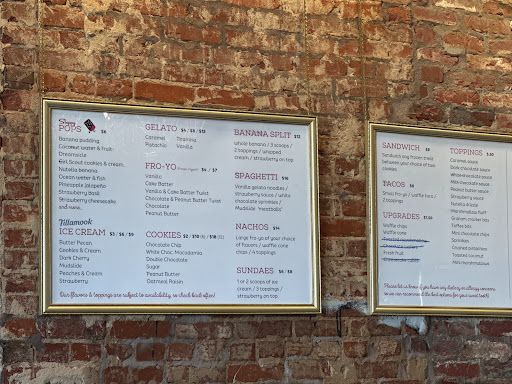 POPS $6
Banana pudding
Coconut water & fruit
Dreamsicle
Girl Scout cookies & cream
Nutella banana
Ocean water & fish
Pineapple jalapeño
Strawberry basil
Strawberry cheesecake
and more...
Tillamook
ICE CREAM $3 / $6 / $9
Butter Pecan
Cookies & Cream
Dark Cherry
Mudslide
Peaches & Cream
Strawberry
GELATO
Caramel Tiramisu
Pistachio Vanilla
Chocolate
FRO-YO $4 / $7
Vanilla
Cake Batter
Vanilla & Cake Batter Twist
Chocolate & Peanut Butter Twist
Chocolate
Peanut Butter
COOKIES $2 / $10 (6) / $18 (12)
Chocolate Chip
White Choc. Macadamia
Double Chocolate
Sugar
Peanut Butter
Oatmeal Raisin
BANANA SPLIT $12
whole banana / 3 scoops
/ 2 toppings / whipped
cream /
strawberry on top
SPAGHETTI $16
Vanilla gelato noodles /
strawberry sauce / white
chocolate sprinkles /
Mudslide 'meatballs'
NACHOS $14
Large fro-yo of your choice
of flavors / waffle cone
chips / 4 toppings
SUNDAES $6 / $8
1 or 2 scoops of ice
cream / 3 toppings /
strawberry on top
Our flavors & toppings are subject to availability, so check back often!
SANDWICH
Sandwich any frozen treat
between your choice of two
cookies
TACOS $8
Small fro-yo / waffle taco /
2 toppings
UPGRADES $1.50
Waffle chips
Waffle cone
Fresh fruit
TOPPINGS $.50
Caramel sauce
Dark chocolate sauce
White chocolate sauce
Mixed berry sauce
Peanut butter sauce
Strawberry sauce
Nutella drizzle
Marshmallow fluff
Graham cracker bits
Toffee bits
Mini chocolate chips
Sprinkles
Crushed pistachios
Toasted coconut
Mini marshmallows
Please let us know if you have any dietary or allergy concerns
so we can recommend the best options for your sweet tooth!